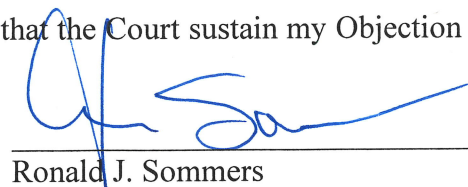 that the Court sustain my Objection
Ronald J. Sommers